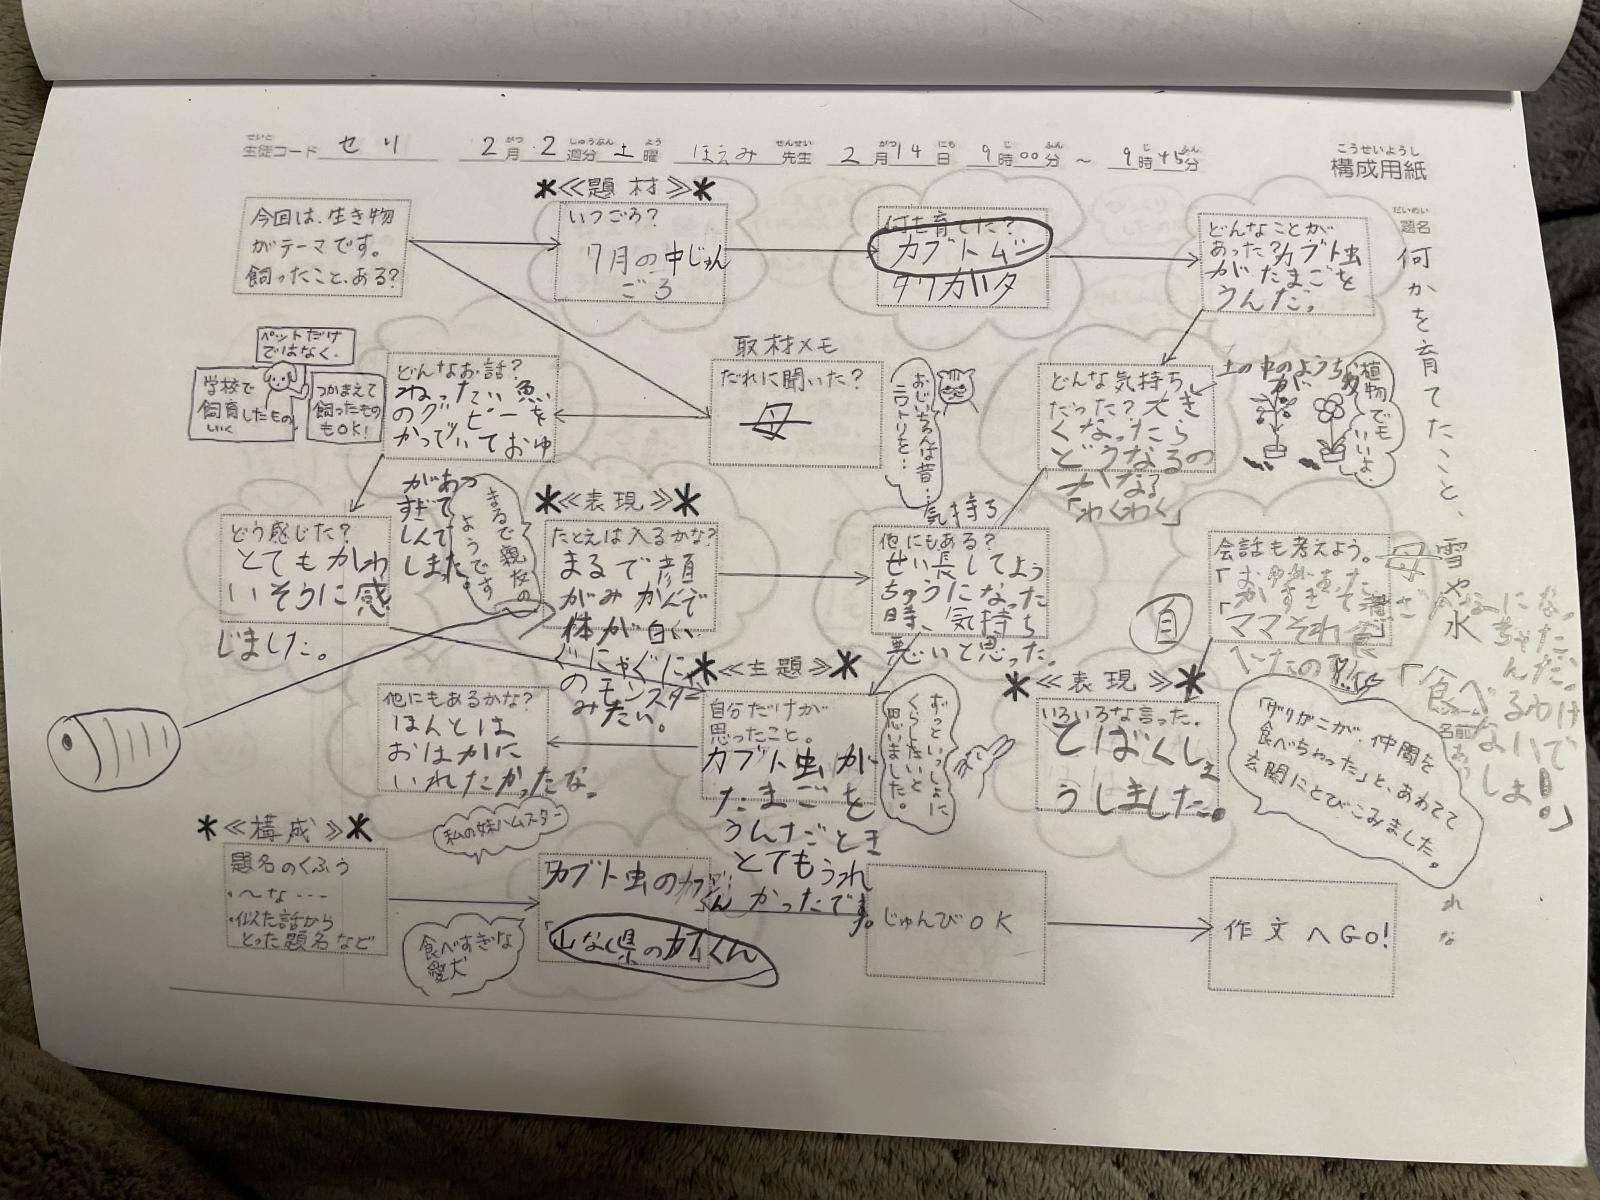 こうせいようし
構成用紙
せいと
生徒コード セリ
がつ じゅうぶん よう
2月 2週分 土曜
せんせい
ほえみ 先生
がつ にち じ ふん じ ふん
2月14日 9時00分 〜 9時45分
だいめい
題名
何かを育てたこと、
雪や氷
名前
今回は、生き物
がテーマです。
飼ったこと、ある?
≪題材≫
いつごろ?
7月の中じゅん
ごろ
何を育てた?
カブトムシ
クワガタ
どんなことが
あった?カブト虫
がたまごを
うんだ。
ペットだけ
ではなく、
学校で
飼育したもの
いく
つかまえて
飼ったもの
もOK!
どんなお話?
ねったい魚
のグッピーを
かっていておゆ
があつ
すぎて
しんで
しまた。
取材メモ
だれに聞いた?
母
おじいちゃんは昔…
ニワトリを…
どんな気持ち
だった?大き
くなったら
どうなるの
かなる
「わくわく」
土の中のようちゅう
が
植物でも
いいよ。
どう感じた?
とてもかわ
いそうに感
じました。
まるで親友の
ようです
≪表現≫
たとえは入るかな?
まるで顔
がみかんで
体が白い
ぐにゃぐにゃ
のモンスター
みたい。
気持ち
他にもある?
せい長してよう
ちゅうになった
時、気持ち
悪いと思った。
会話も考えよう。
母
自
「ママそれ食
べたの?」
「食べ
るわけ
ないで
しょ!」
他にもあるかな?
ほんとは
おはかに
いれたかったな。
≪主題≫
自分だけが
思ったこと。
カブト虫が
たまごを
うんだとき
とてもうれ
しかったです。
ずっといっしょに
くらしたいと
思いました。
≪表現≫
いろいろな言った。
そばくしょ
うしました。
「ザリガニが、仲間を
食べちゃった」と、あわてて
玄関にとびこみました。
≪構成≫
題名のくふう
・〜な…
・似た話から
とった題名など
私の妹ハムスター
食べすぎな
愛犬
カブト虫のカブ
くん
「山なし県のカブくん
じゅんびOK
作文へGO!